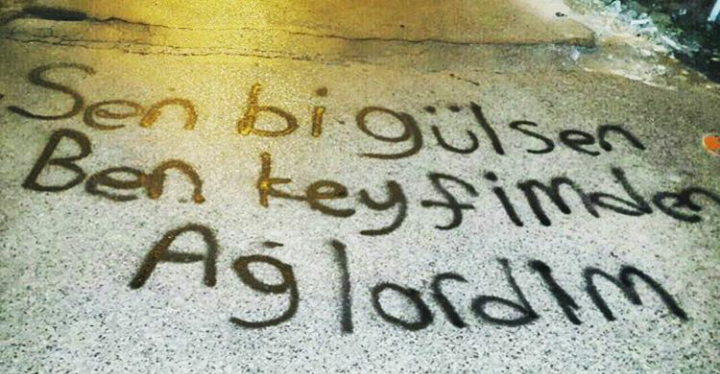 Sen bi gülsen
Ben keyfimden
Ağlardım